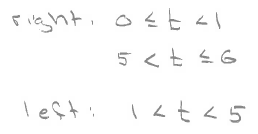 right: 0 ≤ t < 1
5 < t ≤ 6
left: 1 < t < 5